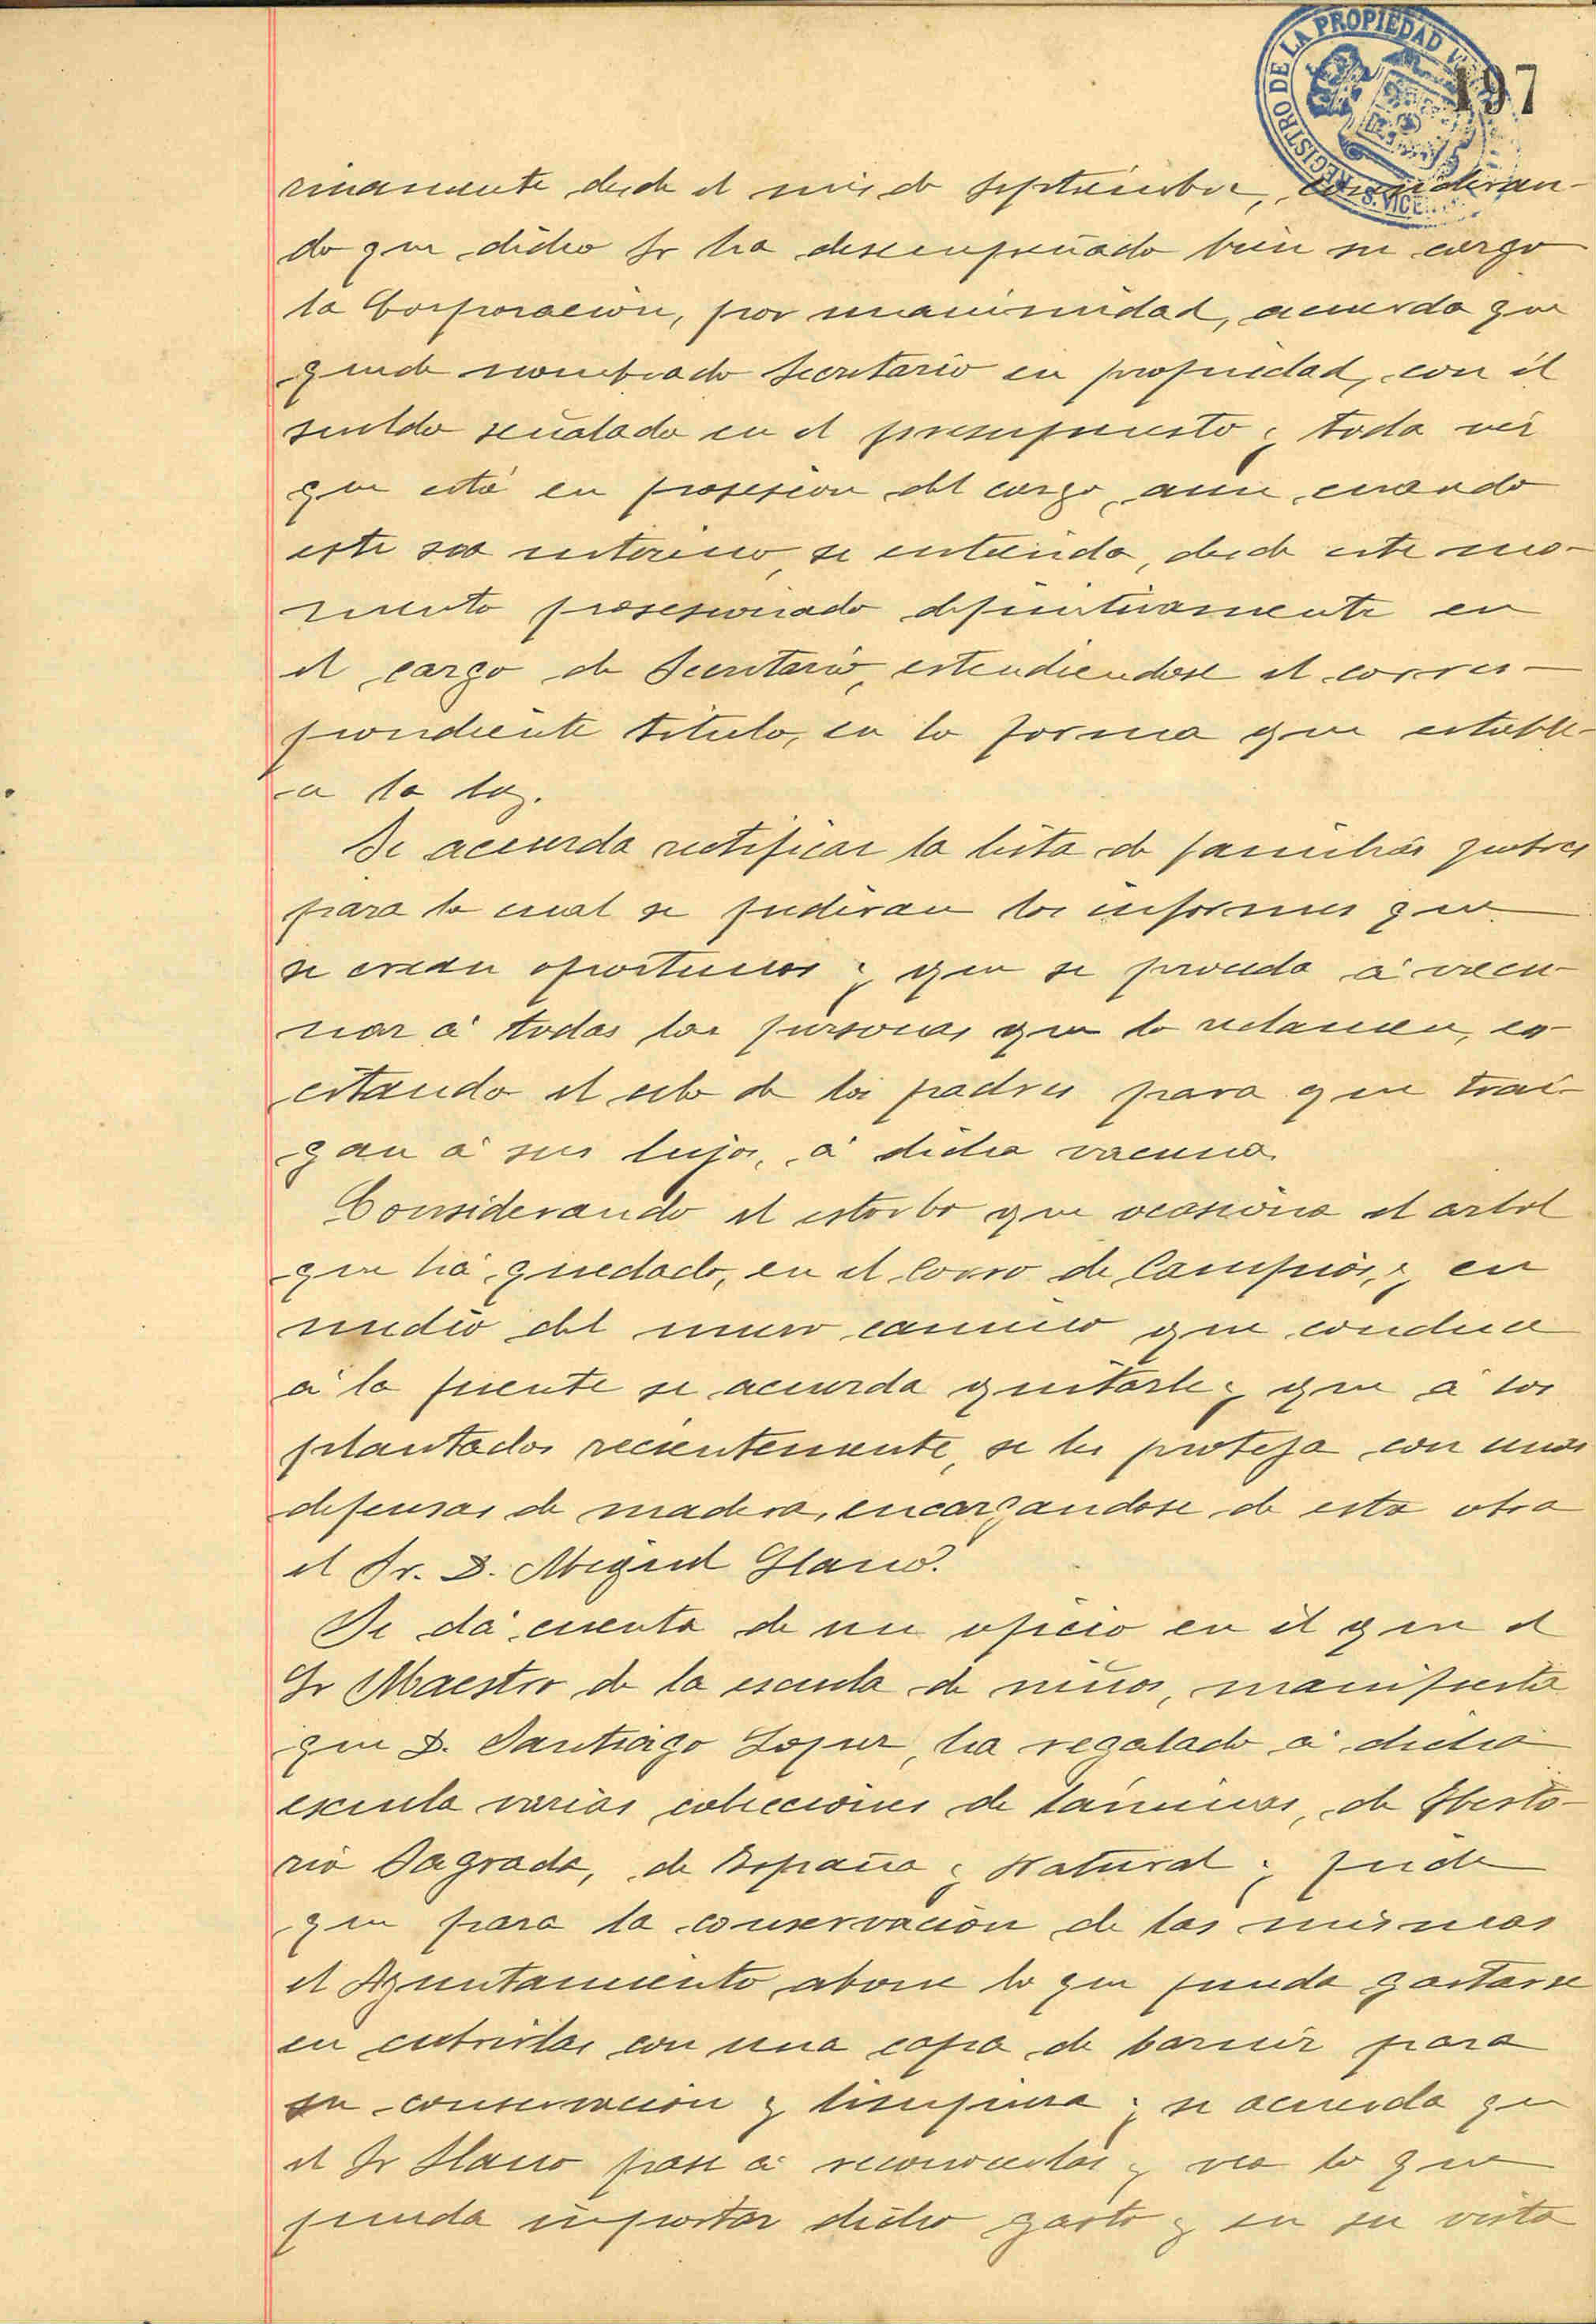 REGISTRO DE LA PROPIEDAD
S. VICE
197
rinamente desde el mes de Septiembre, consideran-
do que dicho Sr ha desempeñado bien su cargo
la Corporación, por unanimidad, acuerda que
quede nombrado Secretario en propiedad, con el
sueldo señalado en el presupuesto y toda vez
que está en posesion del cargo, aun cuando
este sea interino, se entienda, desde este mo-
mento posesionado definitivamente en
el cargo de Secretario, estendiendose el corres-
pondiente titulo, en la forma que estable-
ce la ley.
Se acuerda rectificar la lista de familias pobres
para lo cual se pediran los informes que
se crean oportunos y que se proceda á vacu-
nar á todas las personas que lo reclamen, es-
citando el celo de los padres para que trai-
gan á sus hijos, á dicha vacuna.
Considerando el estorbo que ocasiona el arbol
que há quedado, en el Corro de Campios, y en
medio del nuevo camino que conduce
á la fuente se acuerda quitarle y que á los
plantados recientemente, se les proteja con unas
defensas de madera, encargandose de esta obra
el Sr. D. Miguel Llano.
Se dá cuenta de un oficio en él que el
Sr Maestro de la escuela de niños, manifiesta
que D. Santiago Lopez, ha regalado á dicha
escuela varias colecciones de láminas, de Histo-
ria Sagrada, de España y Natural y pide
que para la conservación de las mismas
el Ayuntamiento abone lo que pueda gastarse
en cubrirlas con una capa de barniz para
su conservacion y limpieza y se acuerda que
el Sr Llano pase á reconocerlas y vea lo que
pueda importar dicho gasto y en su vista